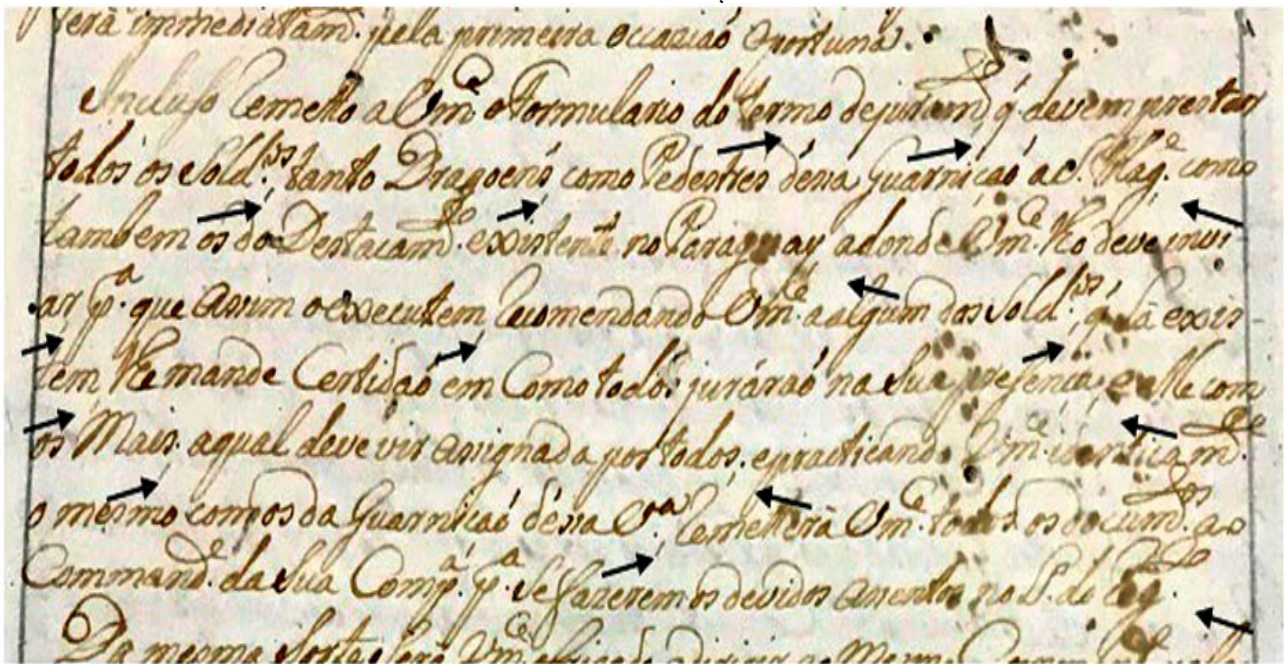 será immediatam.te pela primeira occaziaõ oportuna.
Incluso Remetto a Vm.ce o Formulario do termo dejuram.to q̃ devem prestar
todos os Sold.os tanto Dragoens como Pedestres désa Guarniçaõ a S. Mag.e como
tambem os do Destacam.to existente no Paraguay adonde Vm.ce
ar p.a que assim o executem Recomendando Vm.ce a algum dos Sold.os q̃ lá exis
tem Certidaõ em Como todos juráraõ na sua presença, e elle com
os Mais aqual deve vir assignada por todos, epracticando Vm.ce identicam.te
o mesmo com os da Guarniçaõ désa Remetterá Vm.ce todos os docum.tos ao
Command.e da sua Comp.a p.a se fazerem os devidos assentos no L.o do
Da mesma sorte será Vm.ce obrigado